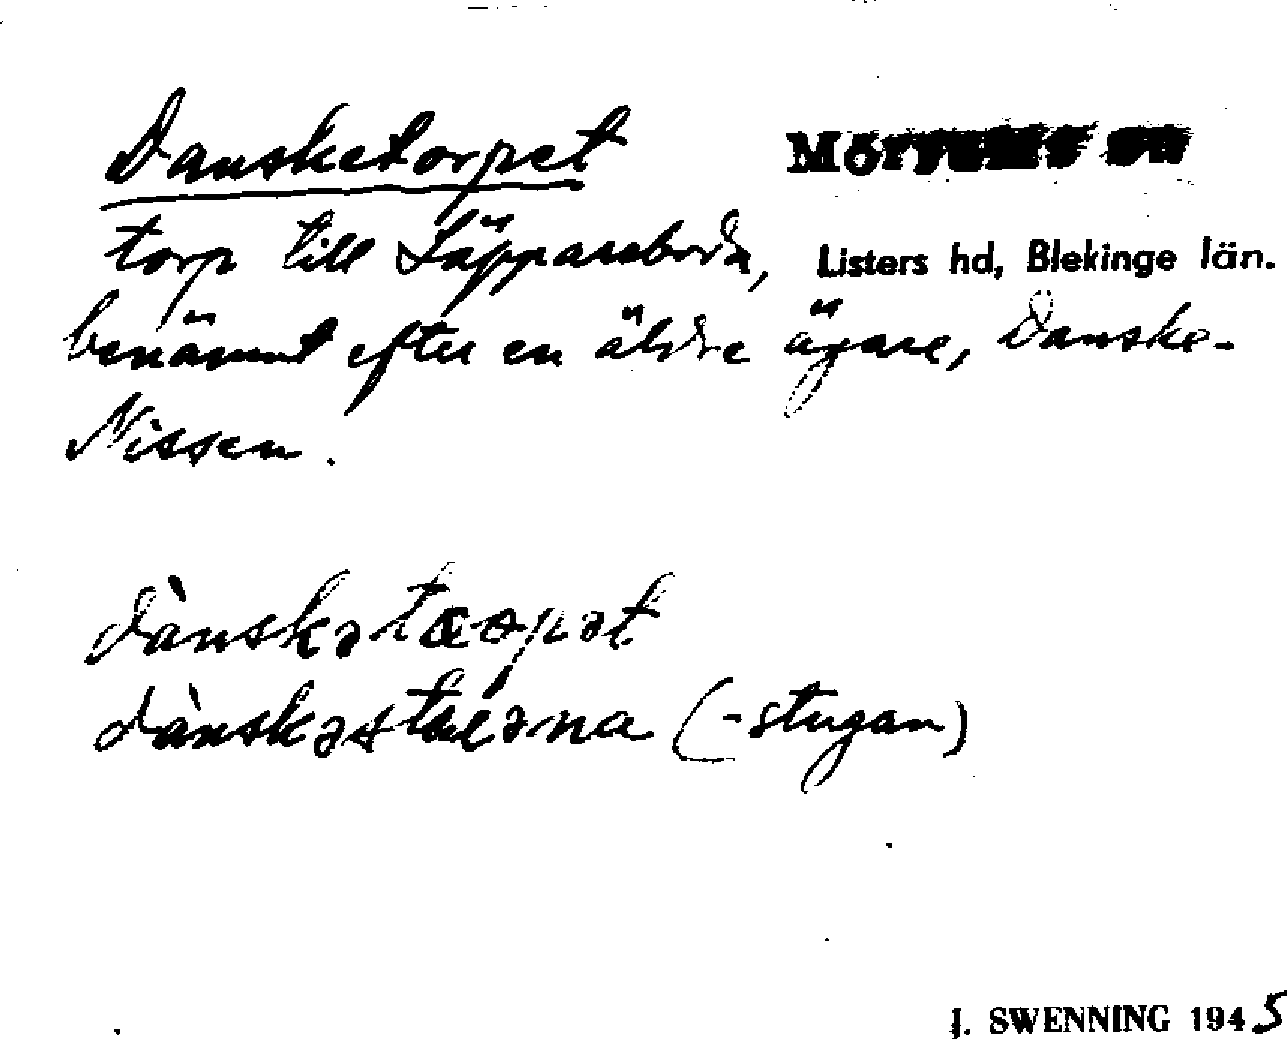 Dansketorpet
Mörrums sn
torp till Läppareboda,
Listers hd, Blekinge län.
benämnt efter en äldre ägare, Danske-
Nissen.
(-stugan)
J. SWENNING 1945